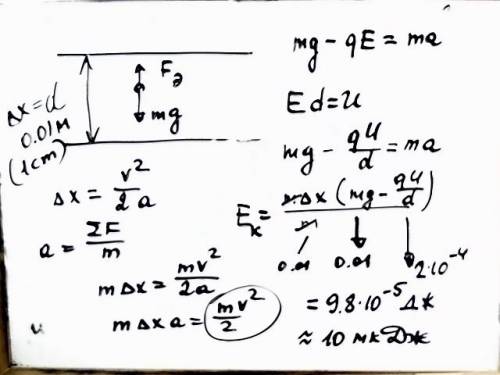 Fэ
mg
Δx = d
0.01 м
(1 cm)
Δx = v²/2a
a = ΣF/m
mΔx = mv²/2a
mΔxa = mv²/2
mg - qE = ma
Ed = U
mg - qU/d = ma
Eк = mΔx (mg - qU/d)/m
0.01 0.01 2·10⁻⁴
= 9.8·10⁻⁵ Дж
≈ 10 мкДж